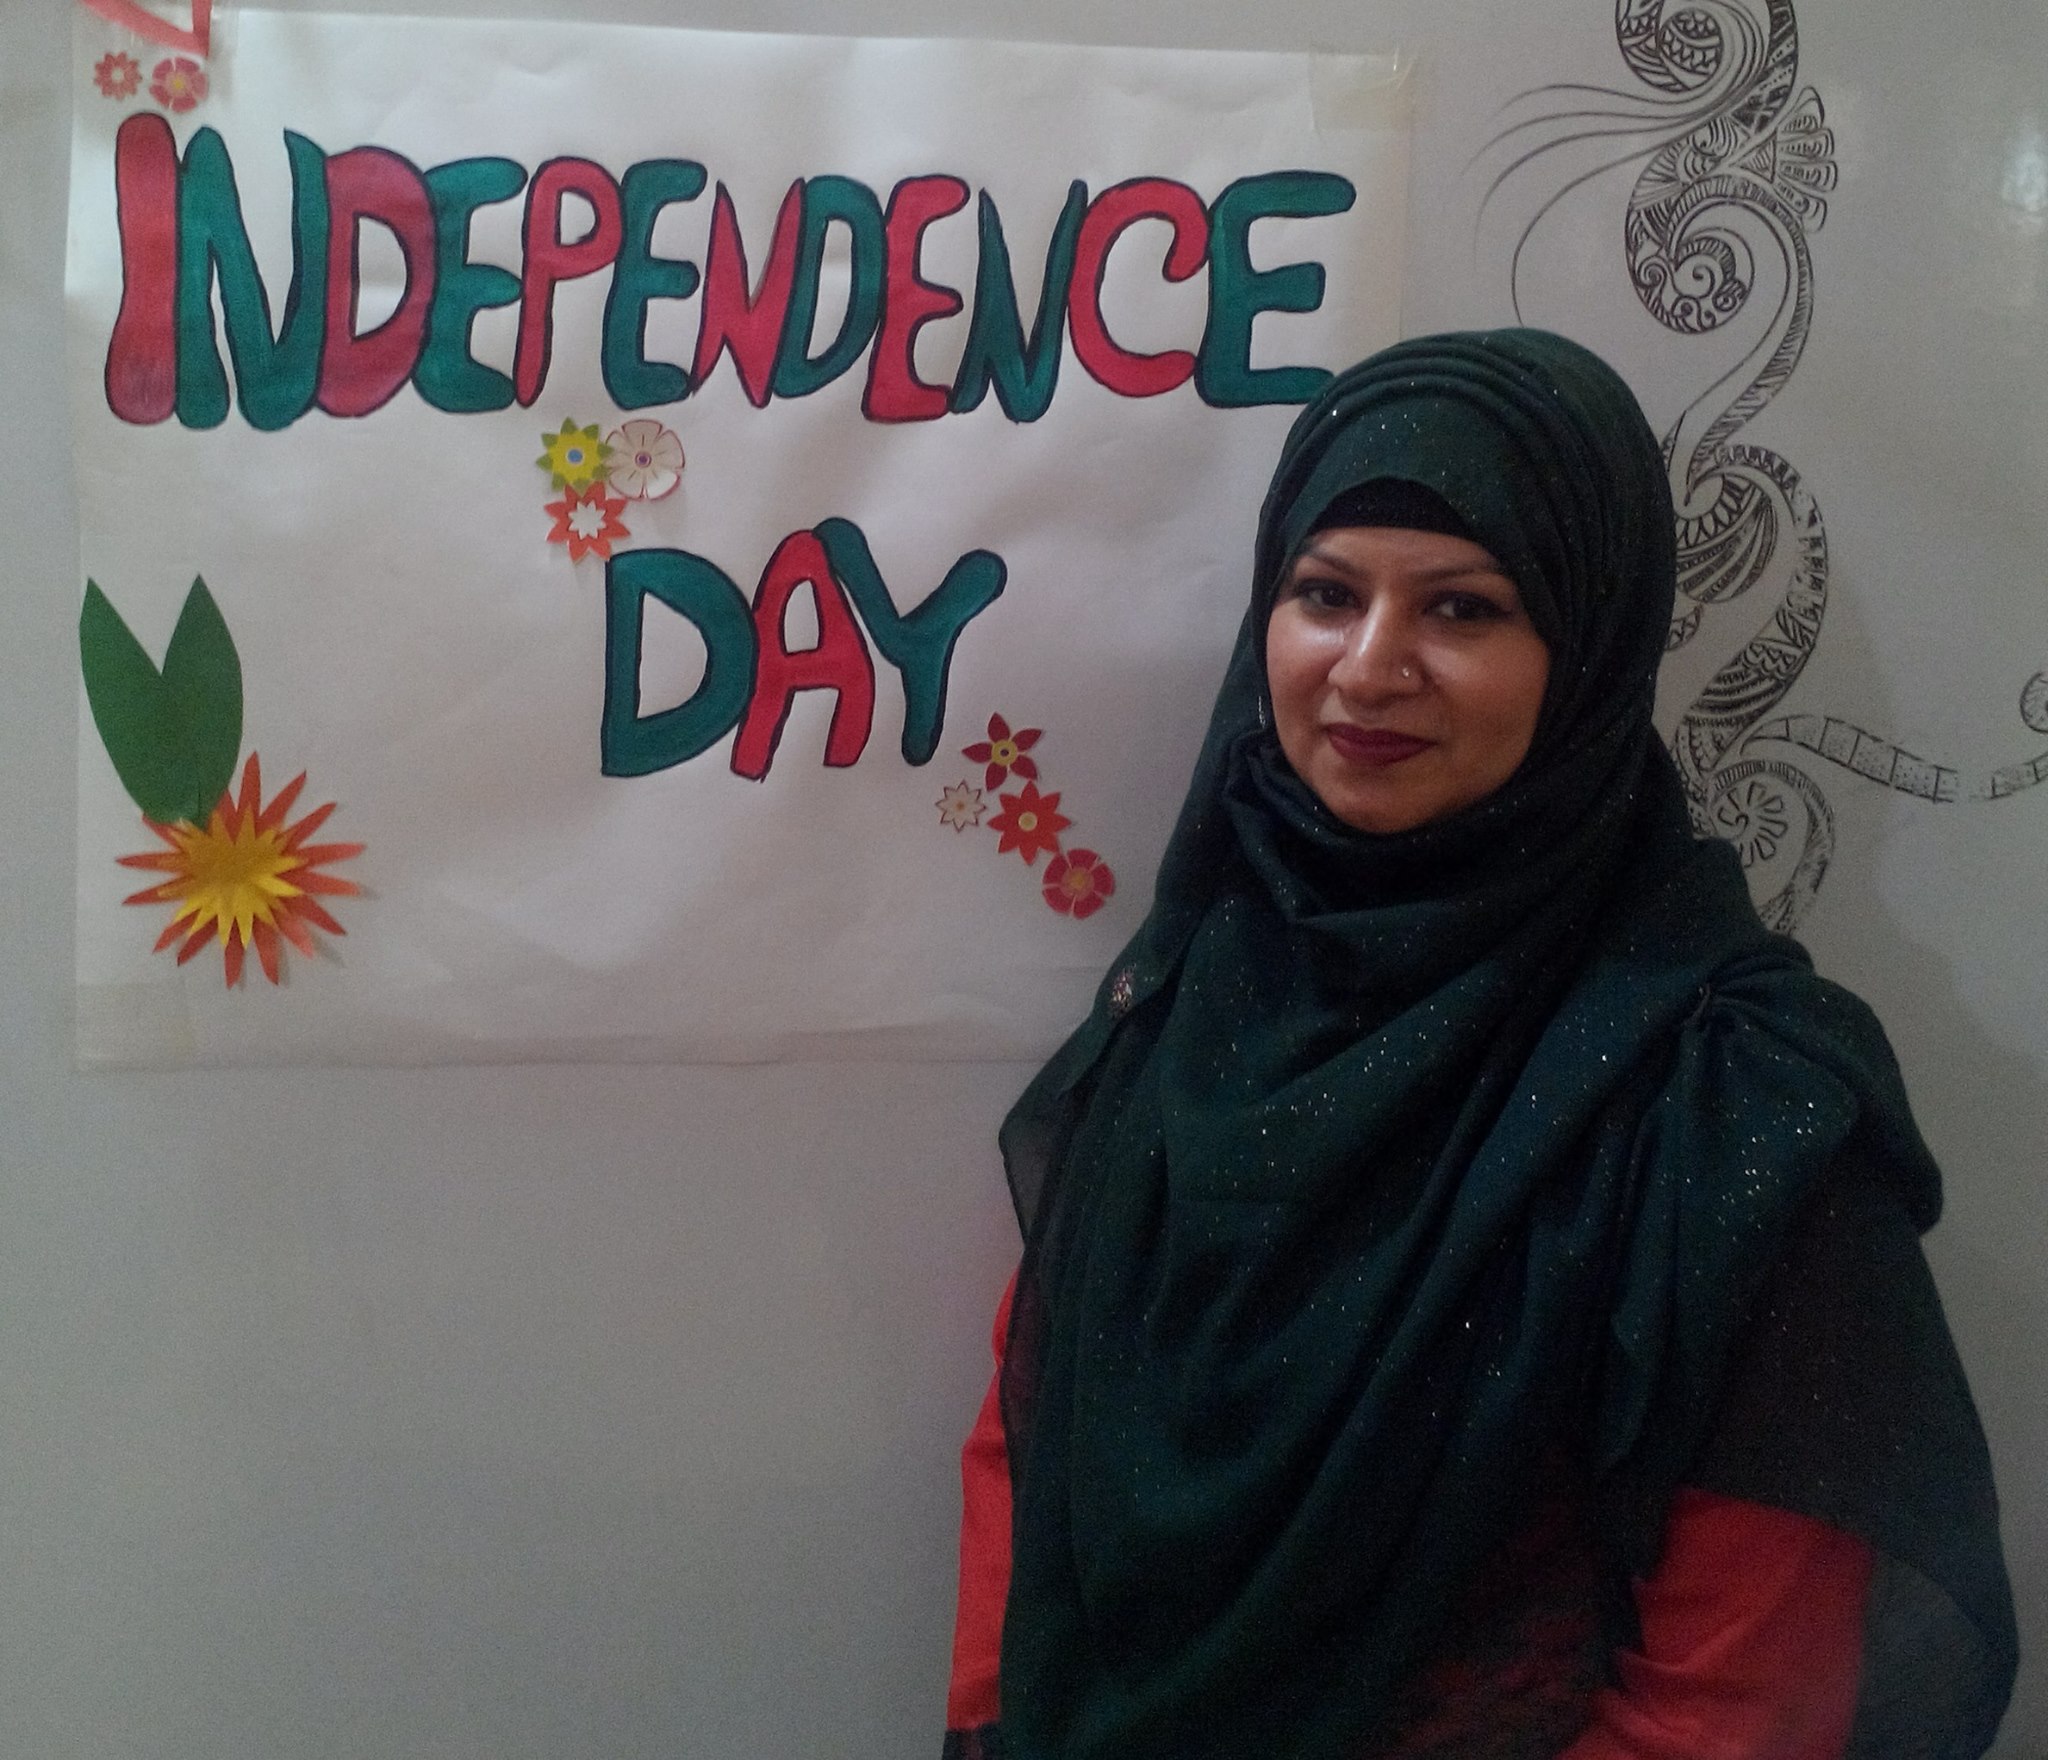 INDEPENDENCE
DAY